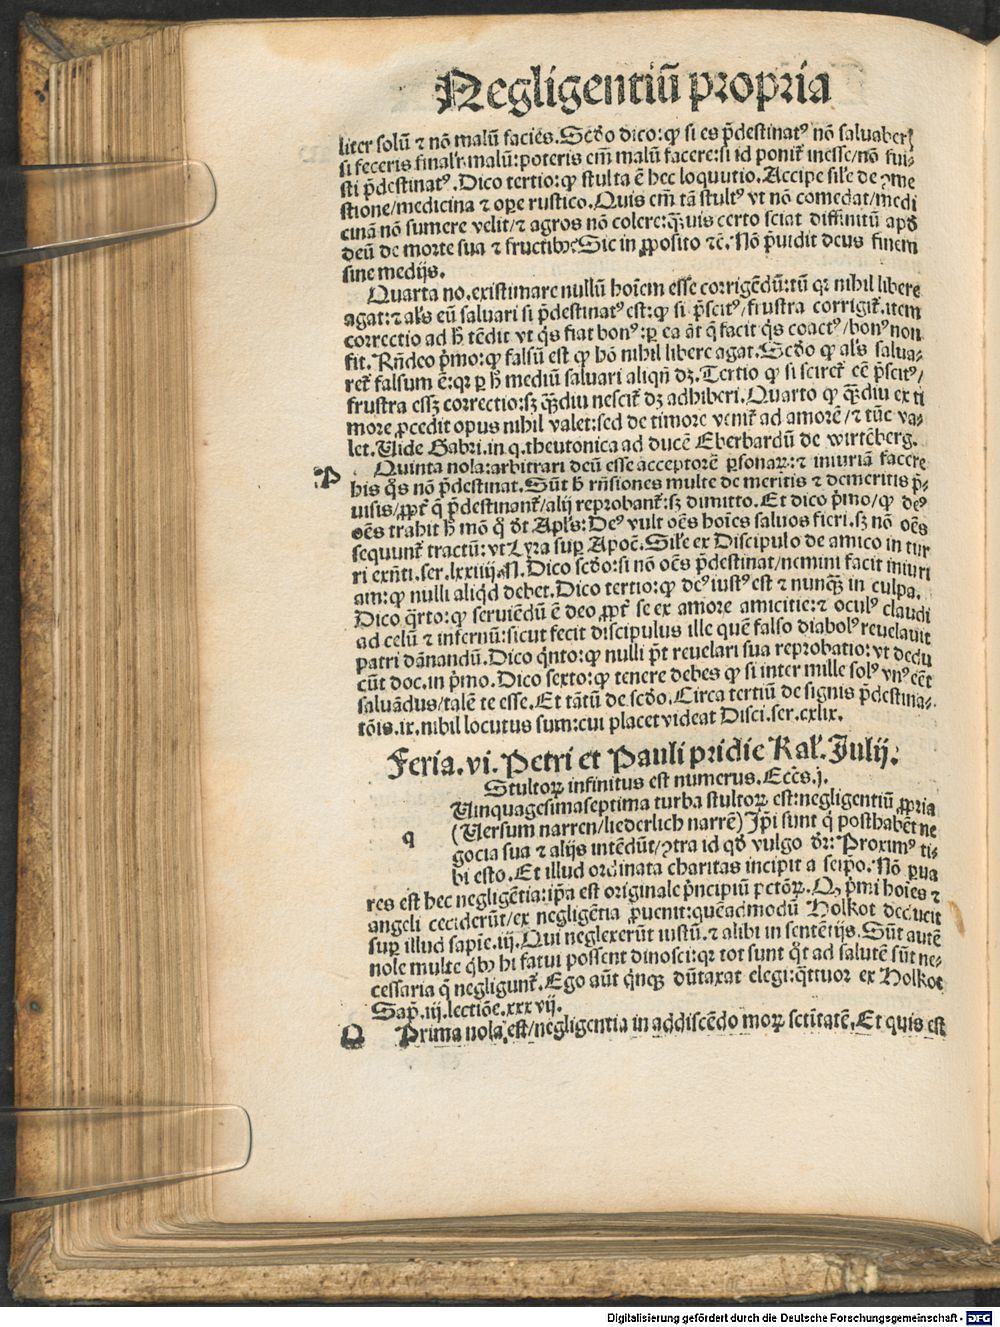 Negligentiū propria
liter solū ⁊ nō malū facies. Scḋo dico: ꝙ si es p̄destinatꝰ nō saluaberꝭ
si feceris finalr̄ malū: poteris em̄ malū facere: si id ponit̄ inesse/nō fui-
sti p̄destinatꝰ. Dico tertio: ꝙ stulta ē hec loquutio. Accipe sil'e de ꝯme
stione/medicina ⁊ oꝑe rustico. Quis em̄ tā stultꝰ vt nō comedat/medi
cinā nō sumere velit/⁊ agros nō colere: q̄ꝫuis certo sciat diffinitū apḋ
deū de morte sua ⁊ fructibꝰ: Sic in ꝓposito ⁊c̄. Nō p̄uidit deus finem
sine medijs.
Quarta no. existimare nullū hoīem esse corrigēdū: tū qꝛ nihil libere
agat: ⁊ al's eū saluari si p̄destinatꝰ est: ꝙ si p̄scitꝰ/frustra corrigit̄. item
correctio ad ħ tēdit vt q̇s fiat bonꝰ: ꝑ ea āt q̄ facit q̇s coactꝰ/bonꝰ non
fit. Rn̄deo p̄mo: ꝙ falsū est ꝙ hō nihil libere agat. Scḋo ꝙ al's salua-
ret̄ falsum ē: qꝛ ꝑ ħ mediū saluari aliqn̄ dꝫ. Tertio ꝙ si sciret̄ eē p̄scitꝰ/
frustra essꝫ correctio: sꝫ q̄ꝫdiu nescit̄ dꝫ adhiberi. Quarto ꝙ q̄ꝫdiu ex ti
more ꝓcedit opus nihil valet: sed de timore venit̄ ad amorē/⁊ tūc va-
let. Vide Gabri. in q. theutonica ad ducē Eberhardū de wirtēberg.
P Quinta nola: arbitrari deū esse acceptorē ꝑsonaꝝ: ⁊ iniuriā facere
his q̇s nō p̄destinat. Sūt ħ rn̄siones multe de meritis ⁊ demeritis p̄-
uisis/ꝓpt̄ q̄ p̄destinant̄/alij reprobant̄: sꝫ dimitto. Et dico p̄mo/ꝙ deꝰ
oēs trahit ħ mō q̊ ḋt Apl's: Deꝰ vult oēs hoīes saluos fieri. sꝫ nō oēs
sequunt̄ tractū: vt Lyra suꝑ Apoc̄. Sil'e ex Discipulo de amico in tur
ri exn̄ti. ser. lxxiiij. N. Dico scḋo: si nō oēs p̄destinat/nemini facit iniuri
am: ꝙ nulli aliq̇d debet. Dico tertio: ꝙ deꝰ iustꝰ est ⁊ nunq̄ꝫ in culpa.
Dico q̄rto: ꝙ seruiēdū ē deo ꝓpt̄ se ex amore amicitie: ⁊ oculꝰ claudi
ad celū ⁊ infernū: sicut fecit discipulus ille quē falso diabolꝰ reuelauit
patri dānandū. Dico q̇nto: ꝙ nulli p̄t reuelari sua reprobatio: vt dedu
cūt doc. in p̄mo. Dico sexto: ꝙ tenere debes ꝙ si inter mille solꝰ vnꝰ eēt
saluādus/talē te esse. Et tātū de scḋo. Circa tertiū de signis p̄destina-
tōis. ix. nihil locutus sum: cui placet videat Disci. ser. cxlix.
Feria. vi. Petri et Pauli pridie Kal'. Julij.
Stultoꝝ infinitus est numerus. Ecc̄s. j.
q Uinquagesimaseptima turba stultoꝝ est: negligentiū ꝓpria
(Versum narren/liederlich narrē) Ip̄i sunt q̇ posthabēt ne
gocia sua ⁊ alijs intēdūt/ꝯtra id qḋ vulgo ḋr: Proximꝰ ti-
bi esto. Et illud ordinata charitas incipit a seip̄o. Nō ꝑua
res est hec negligētia: ip̄a est originale p̄ncipiū pctōꝝ. Qꝫ p̄mi hoīes ⁊
angeli ceciderūt/ex negligētia ꝓuenit: quēadmodū Holkot deducit
suꝑ illud sapīe. iij. Qui neglexerūt iustū. ⁊ alibi in sentētijs. Sūt autē
nole multe q̇bꝰ hi fatui possent dinosci: qꝛ tot sunt q̊t ad salutē sūt ne-
cessaria q̄ negligunt̄. Ego aūt q̇nqꝫ dūtaxat elegi: q̄ttuor ex Holkot
Sap̄. iij. lectiōe. xxxvij.
Q Prima nola est/negligentia in addiscēdo moꝝ sctītatē. Et quis est
Digitalisierung gefördert durch die Deutsche Forschungsgemeinschaft - DFG